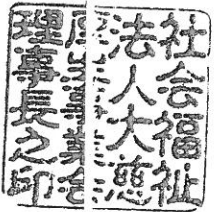 社会福祉
法人大慈
厚生事業会
理事長之印